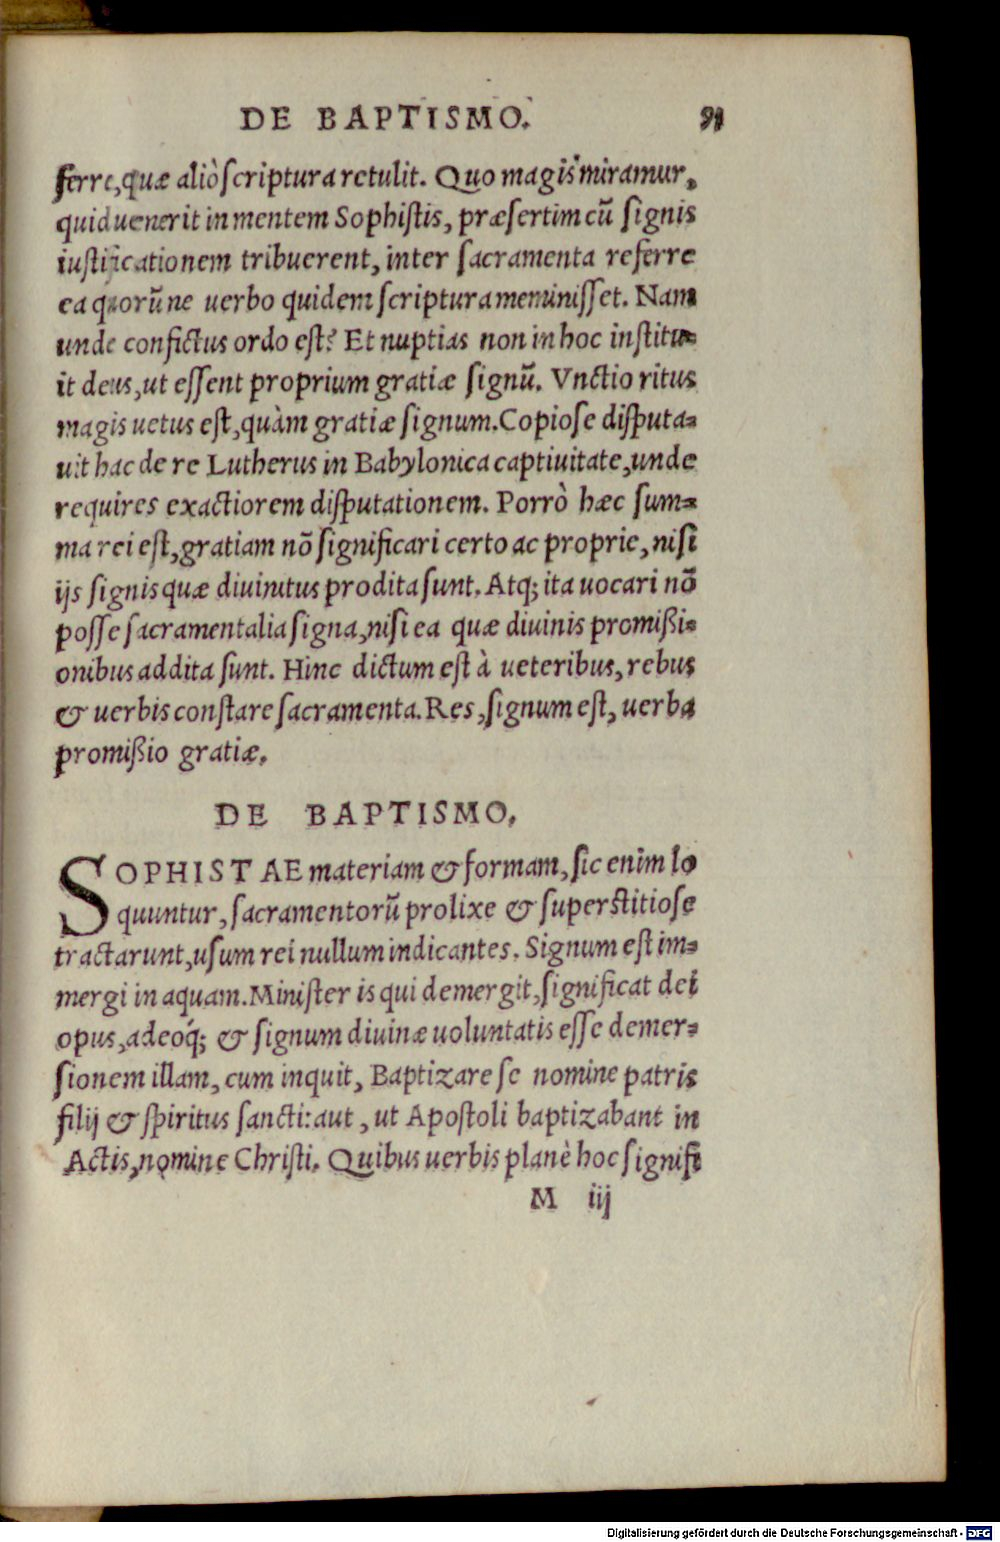 DE BAPTISMO. 91
ferre, quæ aliò scriptura retulit. Quo magis miramur,
quid uenerit in mentem Sophistis, præsertim cũ signis
iustificationem tribuerent, inter sacramenta referre
ea quorũ ne uerbo quidem scriptura meminisset. Nam
unde confictus ordo est? Et nuptias non in hoc institu=
it deus, ut essent proprium gratiæ signũ. Vnctio ritus
magis uetus est, quàm gratiæ signum. Copiose disputa=
uit hac de re Lutherus in Babylonica captiuitate, unde
requires exactiorem disputationem. Porrò hæc sum=
ma rei est, gratiam nõ significari certo ac proprie, nisi
ijs signis quæ diuinitus prodita sunt. Atq; ita uocari nõ
posse sacramentalia signa, nisi ea quæ diuinis promißi=
onibus addita sunt. Hinc dictum est à ueteribus, rebus
& uerbis constare sacramenta. Res, signum est, uerba
promißio gratiæ.
DE BAPTISMO.
SOPHISTAE materiam & formam, sic enim lo
quuntur, sacramentorũ prolixe & superstitiose
tractarunt, usum rei nullum indicantes. Signum est im=
mergi in aquam. Minister is qui demergit, significat dei
opus, adeoq́; & signum diuinæ uoluntatis esse demer=
sionem illam, cum inquit, Baptizare se nomine patris
filij & spiritus sancti: aut, ut Apostoli baptizabant in
Actis, nomine Christi. Quibus uerbis planè hoc signifi
M iij
Digitalisierung gefördert durch die Deutsche Forschungsgemeinschaft - DFG